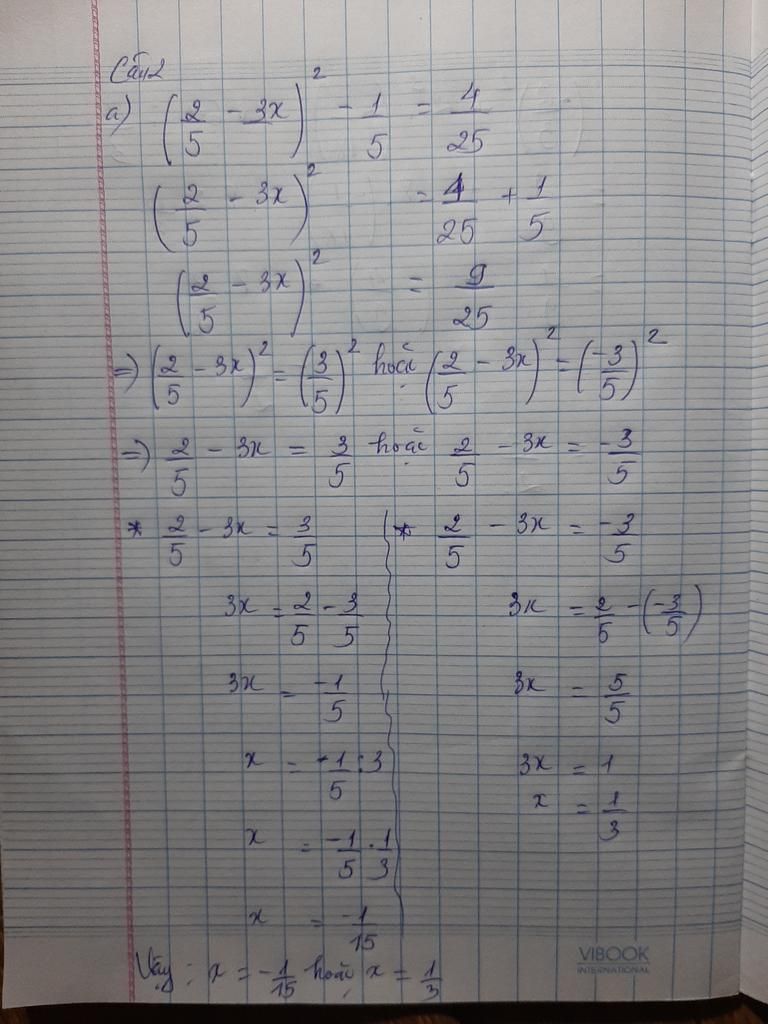 Câu 2
a) (2/5 - 3x)² - 1/5 = 4/25
(2/5 - 3x)² = 4/25 + 1/5
(2/5 - 3x)² = 9/25
=) (2/5 - 3x)² = (3/5)² hoặc (2/5 - 3x)² = (-3/5)²
=) 2/5 - 3x = 3/5 hoặc 2/5 - 3x = -3/5
* 2/5 - 3x = 3/5
3x = 2/5 - 3/5
3x = -1/5
x = -1/5 : 3
x = -1/5 . 1/3
x = -1/15
* 2/5 - 3x = -3/5
3x = 2/5 - (-3/5)
3x = 5/5
3x = 1
x = 1/3
Vậy : x = -1/15 hoặc x = 1/3
VIBOOK
INTERNATIONAL